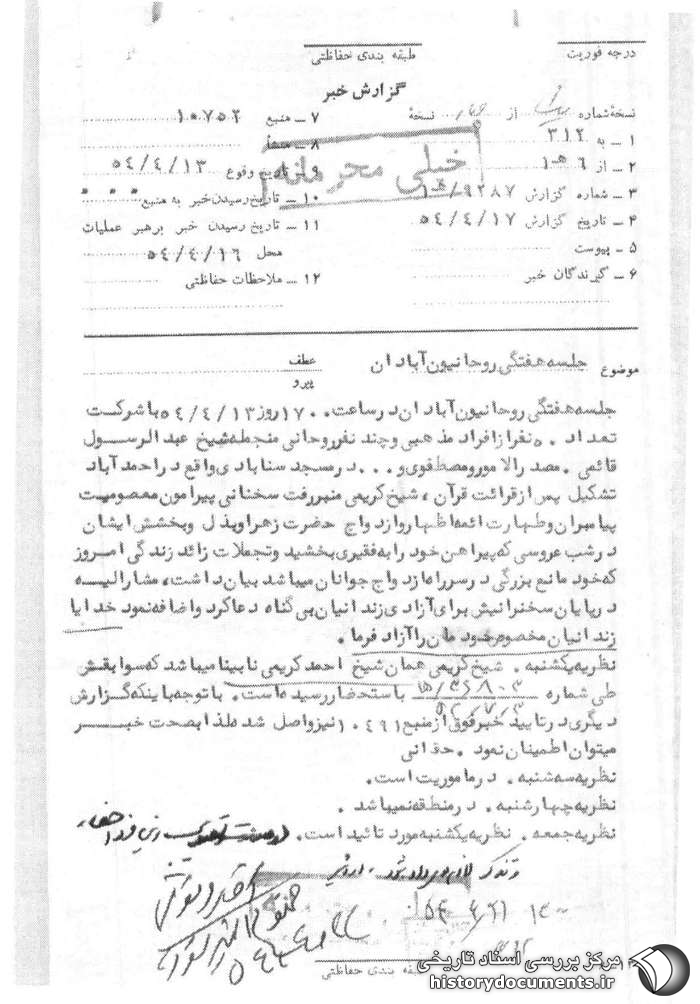 درجه فوریت
طبقه بندی حفاظتی
گزارش خبر
نسخهٔ شماره از نسخهٔ
۱ ــ به ۳۱۲
۲ ــ از ۶ ه‍ ۱
۳ ــ شماره گزارش ۹۲۸۷/ ه‍ ۱
۴ ــ تاریخ گزارش ۵۴/۴/۱۷
۵ ــ پیوست
۶ ــ گیرندگان خبر
۷ ــ منبع ۱۰۷۵۲
۸ ــ منشأ
۹ ــ تاریخ وقوع ۵۴/۴/۱۳
۱۰ ــ تاریخ رسیدن خبر به منبع
۱۱ ــ تاریخ رسیدن خبر برهبر عملیات
محل ۵۴/۴/۱۶
۱۲ ــ ملاحظات حفاظتی
خیلی محرمانه
موضوع جلسه هفتگی روحانیون آبادان
عطف
پیرو
جلسه هفتگی روحانیون آبادان در ساعت ۱۷۰۰ روز ۵۴/۴/۱۳ با شرکت
تعداد ۵۰ نفر از افراد مذهبی و چند نفر روحانی منجمله شیخ عبدالرسول
قائمی . مصدرالامور و مصطفوی و . . . در مسجد سنابادی واقع در احمدآباد
تشکیل پس از قرائت قرآن ، شیخ کریمی منبر رفت سخنانی پیرامون معصومیت
پیامبران و طهارت ائمه اظهار و ازدواج حضرت زهرا و بذل و بخشش ایشان
در شب عروسی که پیراهن خود را به فقیری بخشید و تجملات زائد زندگی امروز
که خود مانع بزرگی در سر راه ازدواج جوانان میباشد بیان داشت ، مشارالیه
در پایان سخنرانیش برای آزادی زندانیان بی گناه دعا کرد و اضافه نمود خدایا
زندانیان مخصوص خودمان را آزاد فرما .
نظریه یکشنبه . شیخ کریمی همان شیخ احمد کریمی نابینا میباشد که سوابقش
طی شماره باستحضار رسیده است . با توجه باینکه گزارش
دیگری در تایید خبر فوق از منبع ۱۰۴۹۱ نیز واصل شد ه لذا بصحت خبر
میتوان اطمینان نمود . حقانی
نظریه سه شنبه . در ماموریت است .
نظریه چهارشنبه . در منطقه نمیباشد .
نظریه جمعه . نظریه یکشنبه مورد تائید است .
طبقه بندی حفاظتی
مرکز بررسی اسناد تاریخی
historydocuments.ir